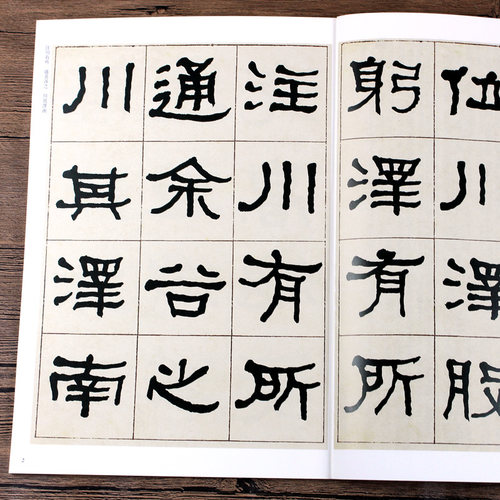 位川澤股
躬澤有所
注川有所
通余谷之
川其澤南
2